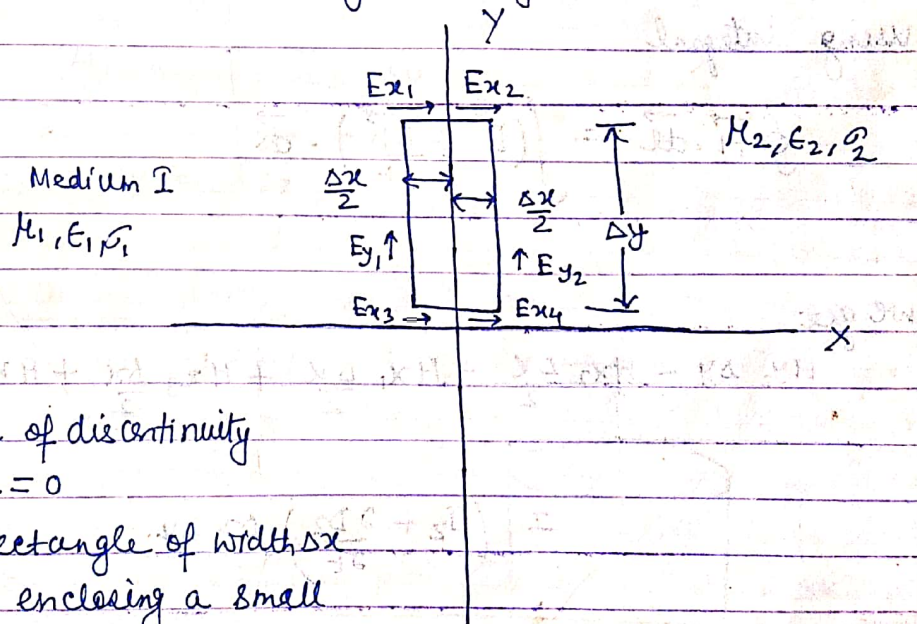 Y
Ex₁ Ex₂
μ₂, ϵ₂, σ₂
Medium I
Δx/2
Δx/2
Δy
μ₁, ϵ₁, σ₁
Ey₁↑
↑Ey₂
Ex₃ → → Ex₄
X
of discontinuity
= 0
rectangle of width Δx
enclosing a small